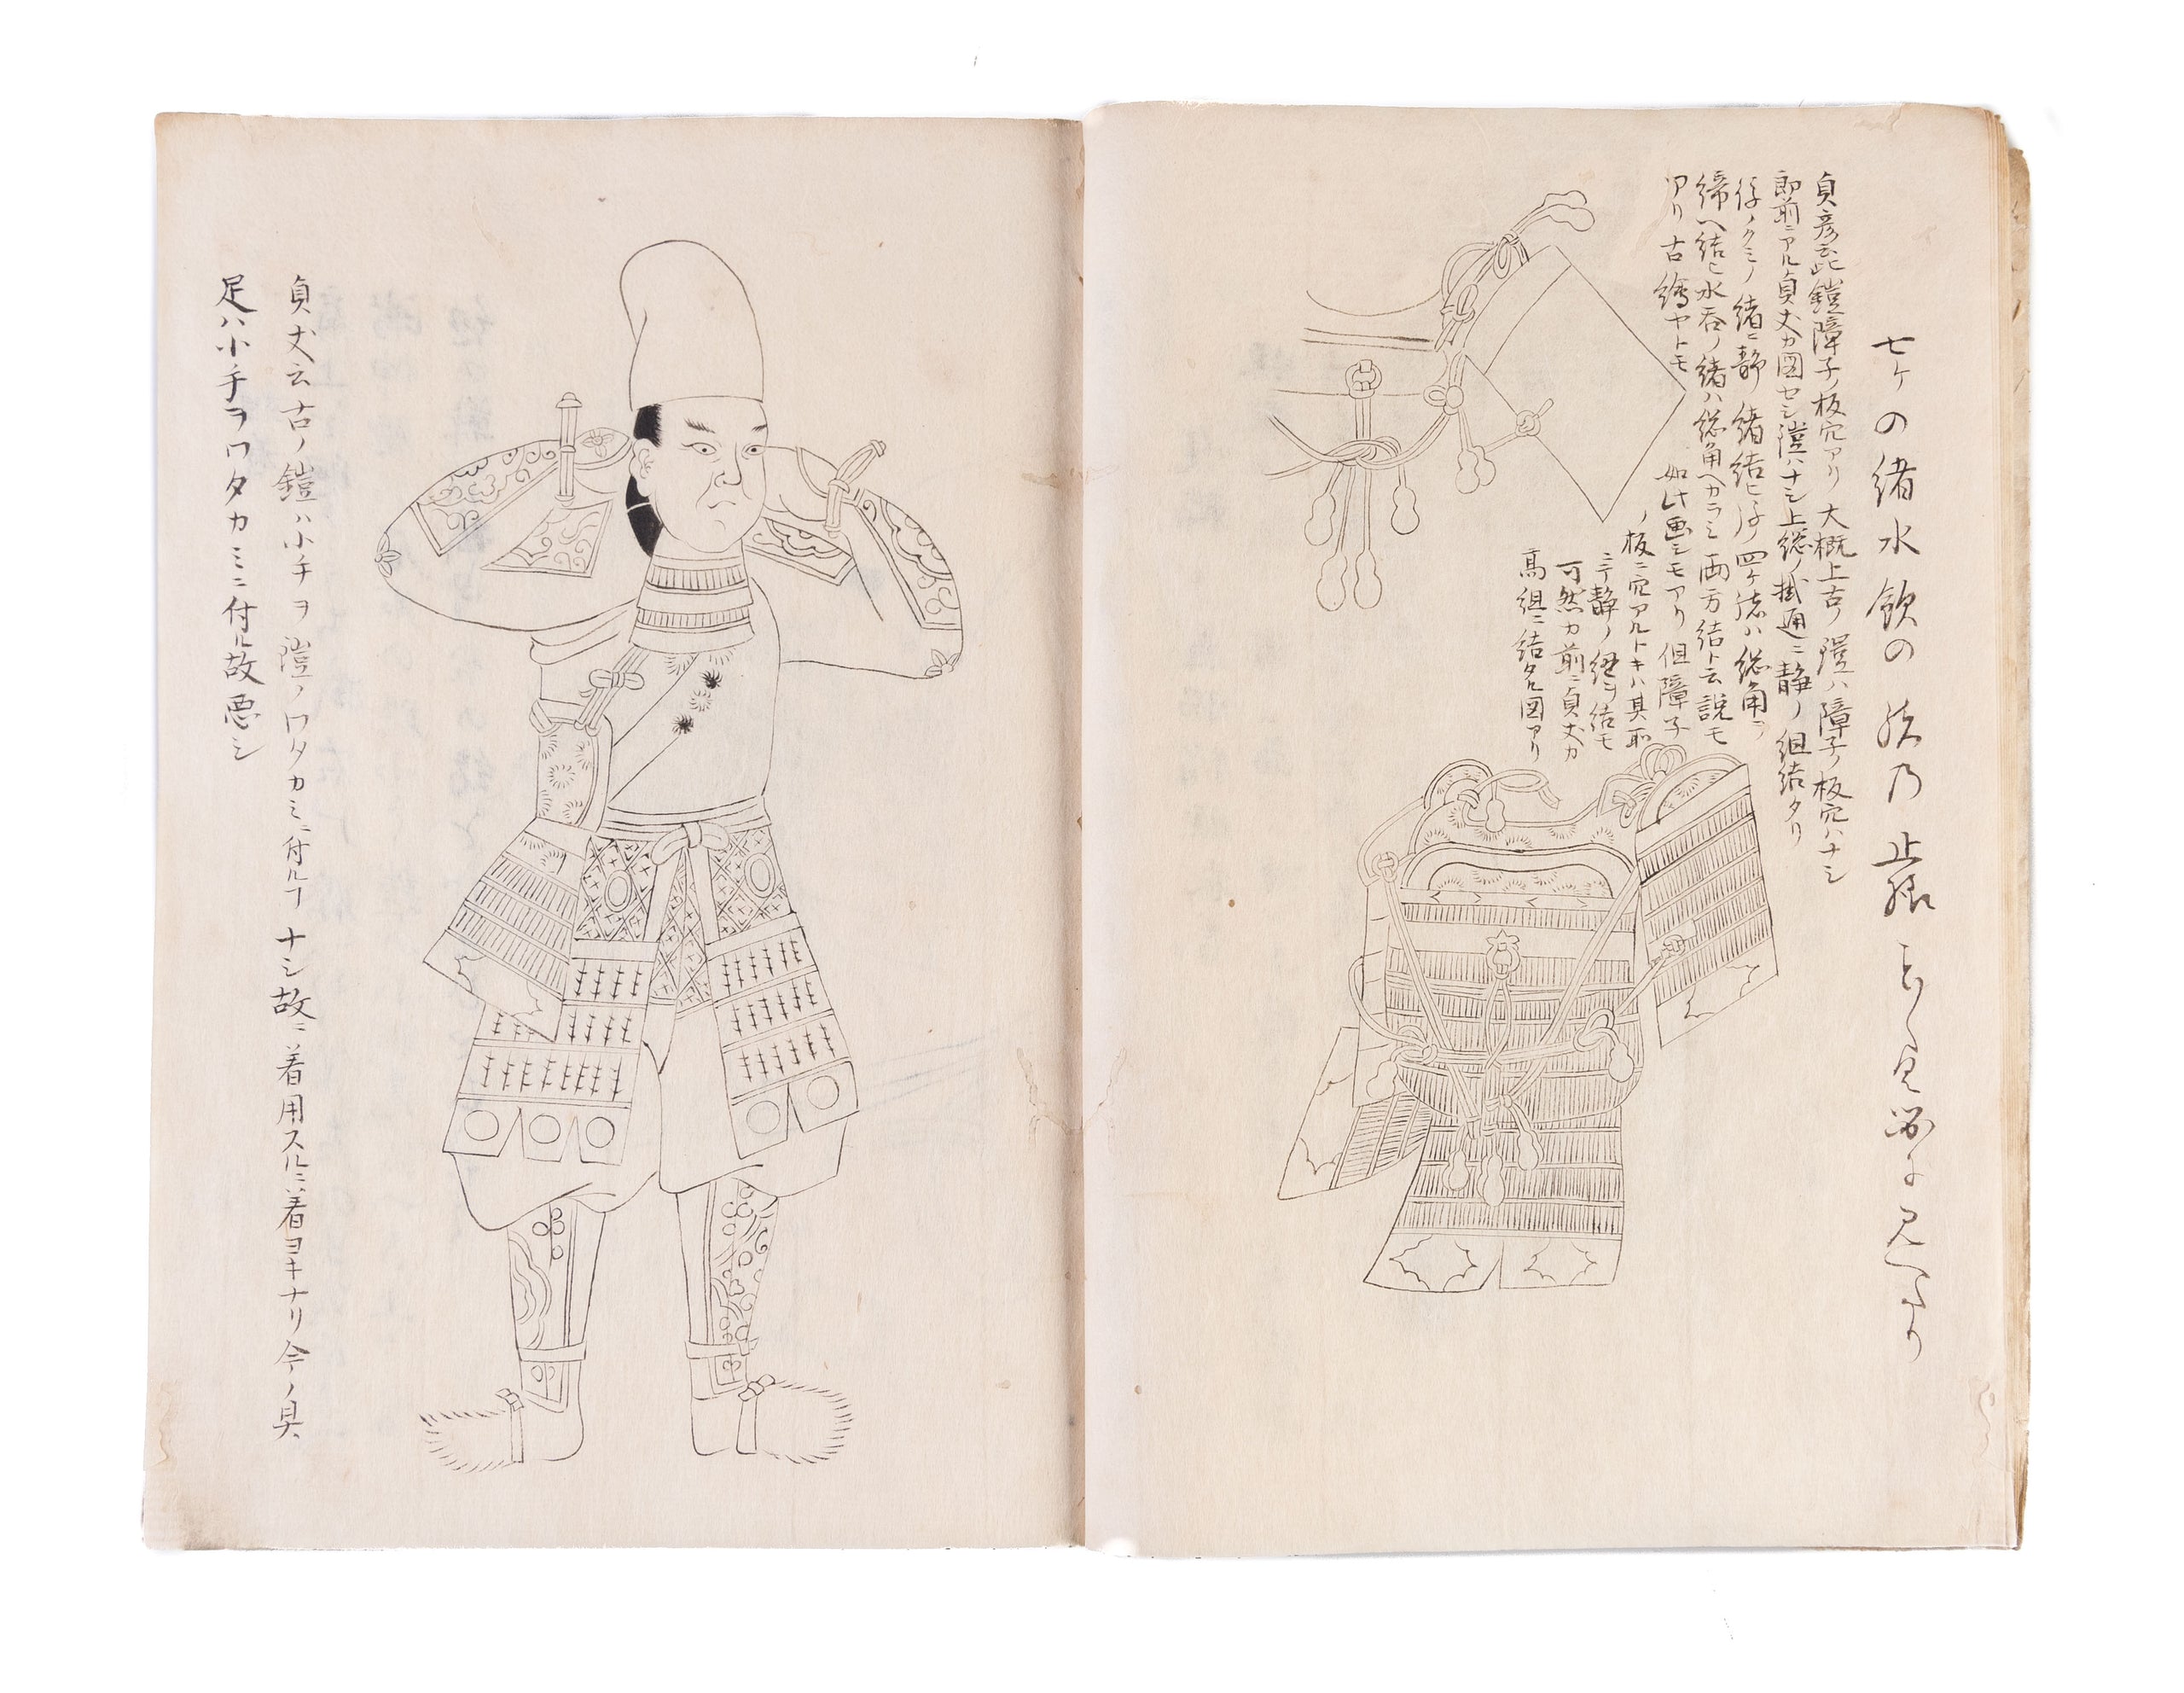 七ケの緒水飲の緒乃
貞彦云此鎧障子ノ板穴アリ 大概上古ノ鎧ハ障子ノ板穴ハナシ
即前ニアル貞丈カ図セシ鎧ハナシ上総ノ掛通ニ静ノ組結タリ
緒ニ静ノ緒結ヒ 四ケ ハ総角ヲ
締ヘ結ヒ水呑ノ緒ハ総角ヘカラミ両方結ト云説モ
アリ 古繪ヤトモ 如此画シモアリ 但障子
ノ板ニ穴アルトキハ其
ニテ静ノ 結モ
可然カ前ニ貞丈カ
高組ニ結タル図アリ
貞丈云古ノ鎧ハ小手ヲ鎧ノワタカミニ付ルヿナシ故ニ着用スルニ着ヨキナリ今ノ具
足ハ小手ヲワタカミニ付ル故悪シ